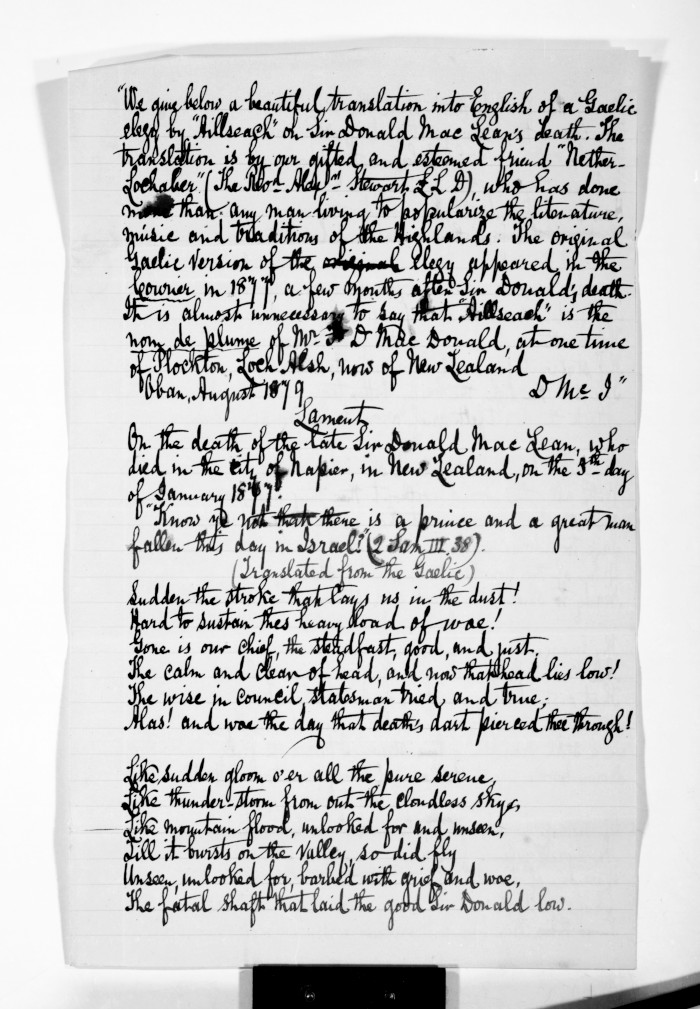 "We give below a beautiful translation into English of a Gaelic
elegy by "Aillseach" on Sir Donald Mac Lean's death. The
translation is by our gifted and esteemed friend "Nether-
Lochaber" (The Revd. Alexr. Stewart L L D), who has done
more than any man living to popularize the literature,
music and traditions of the Highlands. The original
Gaelic version of the original elegy appeared in the
Courier in 1877, a few months after Sir Donald's death.
It is almost unnecessary to say that "Aillseach" is the
nom de plume of Mr. D Mac Donald, at one time
of Plockton, Loch Alsh, now of New Zealand
Oban, August 1879 D Mc I"
Lament
On the death of the late Sir Donald Mac Lean, who
died in the city of Napier, in New Zealand, on the 5th day
of January 1877.
"Know ye not that there is a prince and a great man
fallen this day in Israel?" (2 Sam III 38).
(Translated from the Gaelic)
Sudden the stroke that lays us in the dust!
Hard to sustain this heavy load of woe!
Gone is our chief, the steadfast, good, and just,
The calm and clear of head, and now that head lies low!
The wise in council, statesman tried and true;
Alas! and woe the day that death's dart pierced thee through!
Like sudden gloom o'er all the pure serene,
Like thunder-storm from out the cloudless sky,
Like mountain flood, unlooked for and unseen,
Till it bursts on the valley, so did fly
Unseen, unlooked for, barbed with grief and woe,
The fatal shaft that laid the good Sir Donald low.